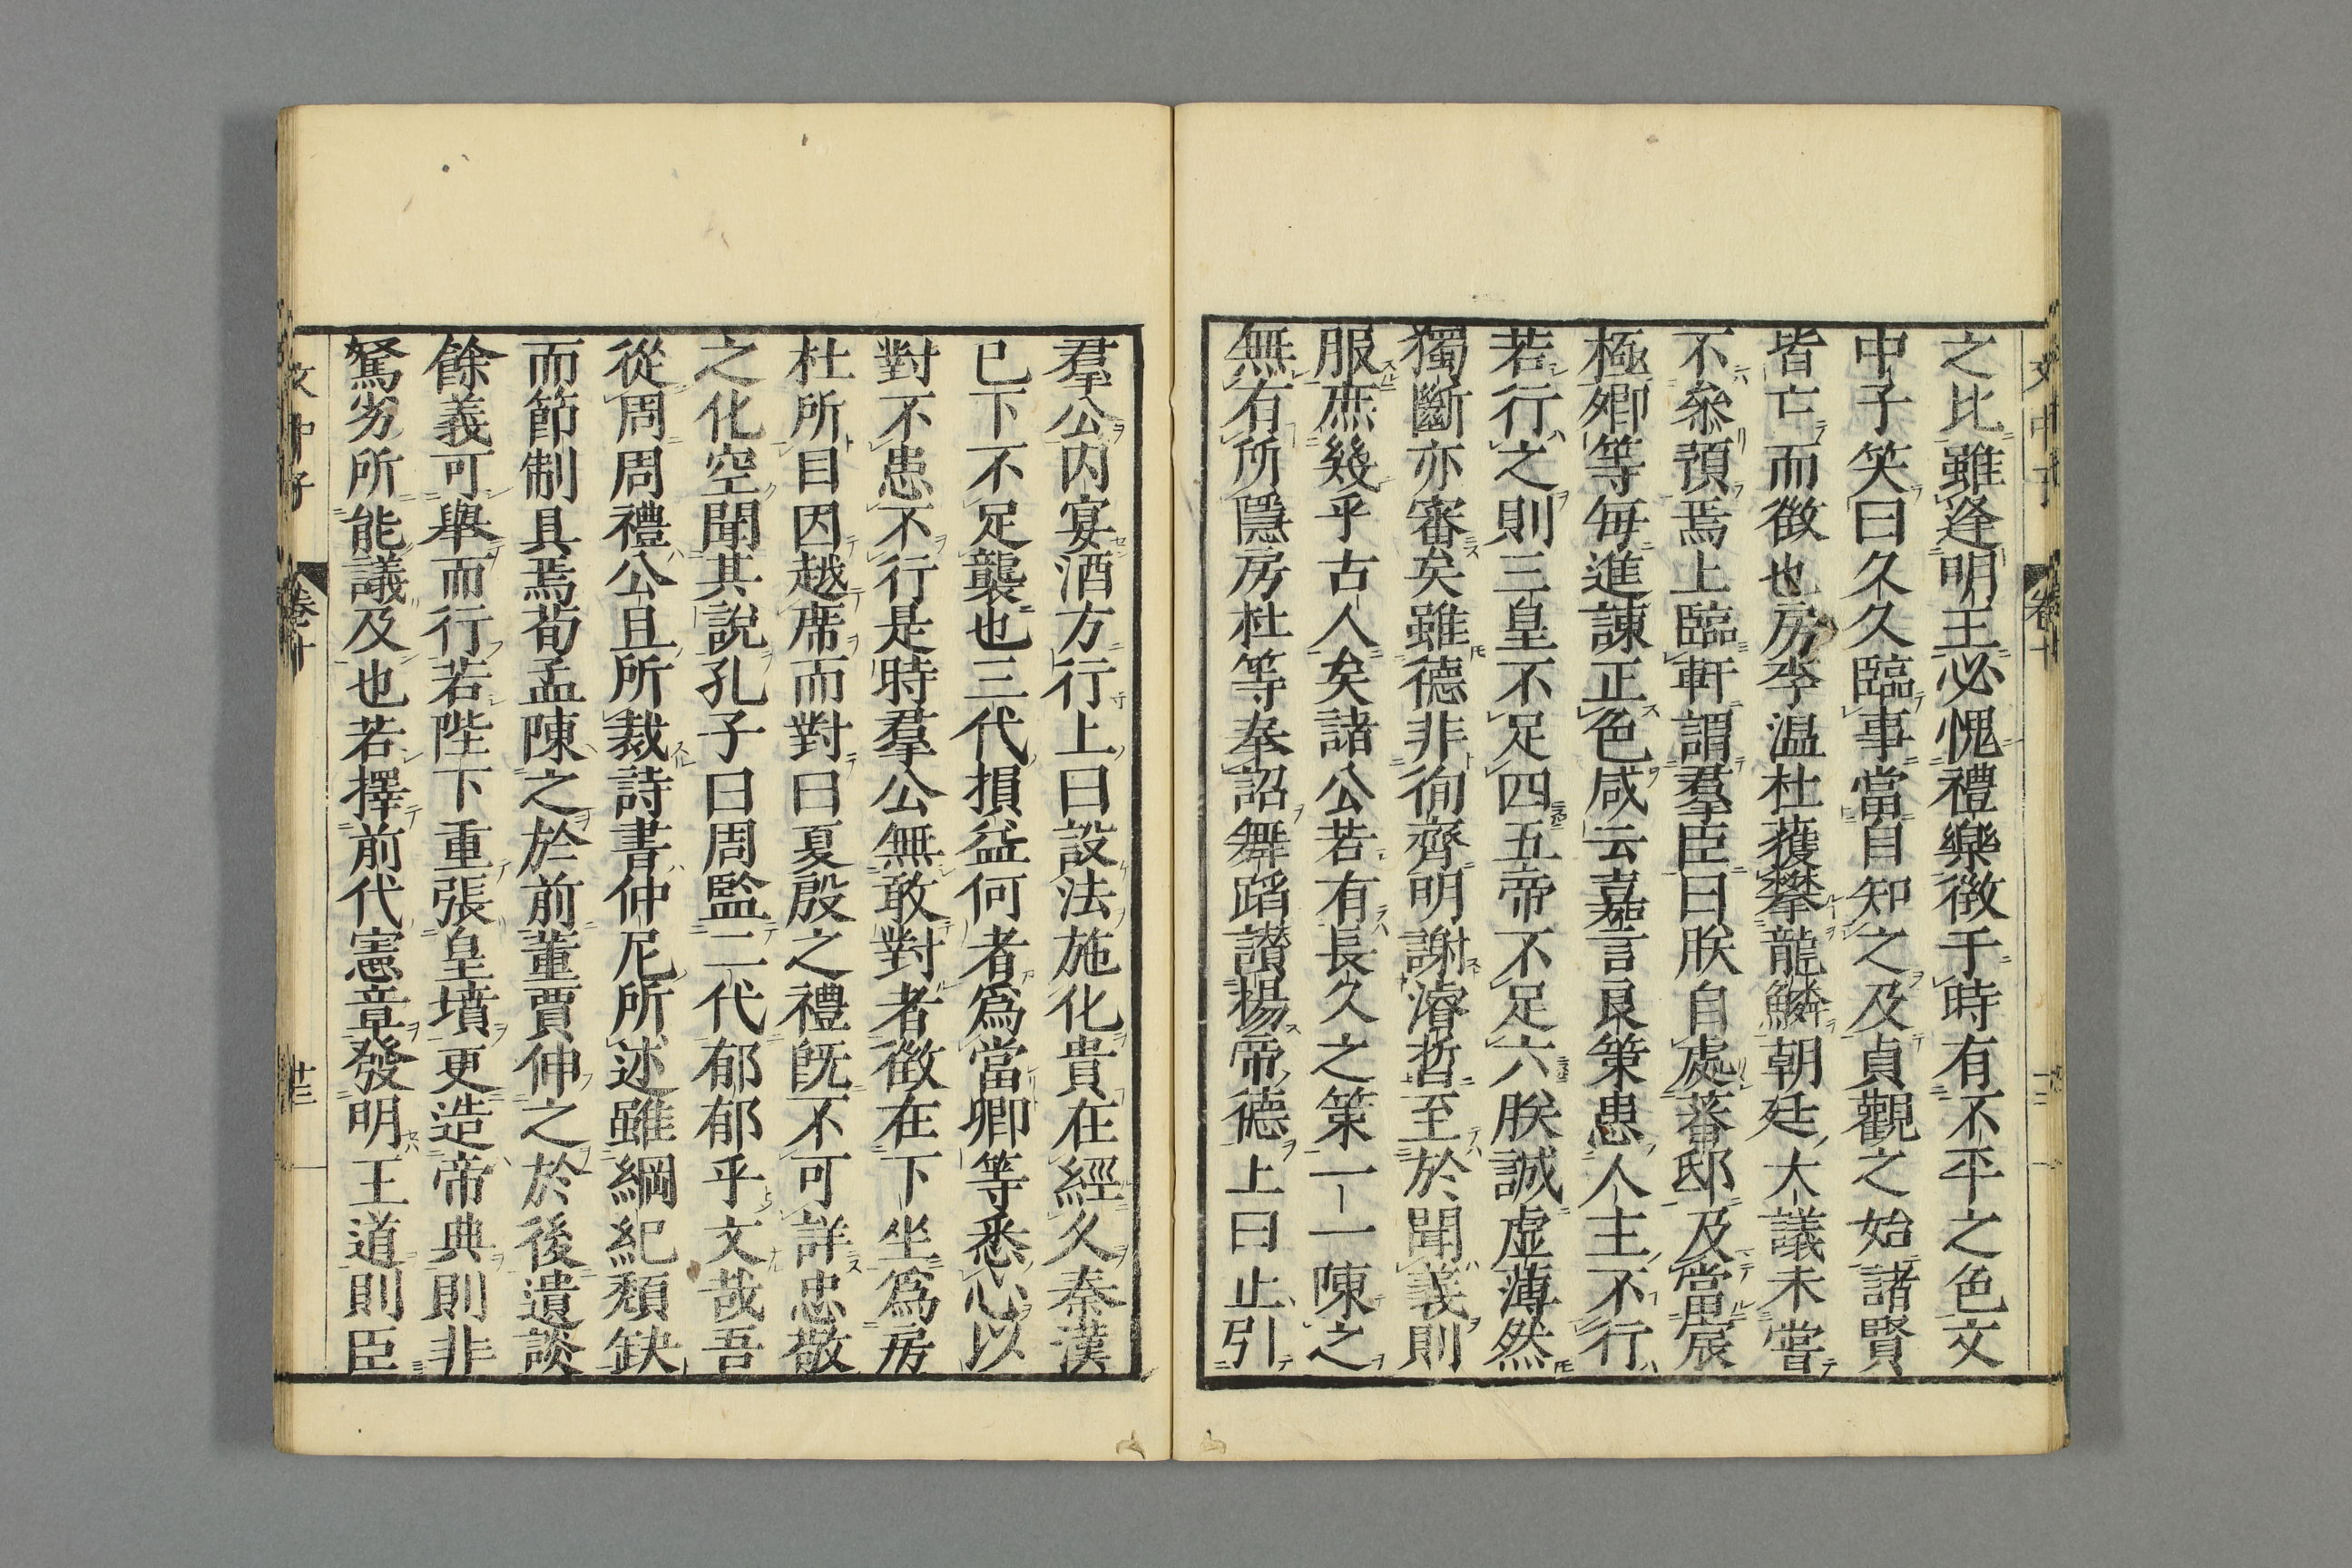 之比雖逢明王必愧禮樂徴于時有不平之色文
中子笑曰久久臨事當自知之及貞觀之始諸賢
皆亡而徴也房李温杜獲攀龍鱗朝廷大議未嘗
不叅預焉上臨軒謂羣臣曰朕自處蕃邸及當扆
極卿等毎進諫正色咸云嘉言良策患人主不行
若行之則三皇不足四五帝不足六朕誠虚薄然
獨斷亦審矣雖德非徇齊明謝濬哲至於聞義則
服庶幾乎古人矣諸公若有長久之策一一陳之
無有所隱房杜等奉詔舞蹈讃揚帝德上曰止引
羣公内宴酒方行上曰設法施化貴在經久秦漢
已下不足襲也三代損益何者爲當卿等悉心以
對不患不行是時羣公無敢對者徴在下坐爲房
杜所目因越席而對曰夏殷之禮旣不可詳忠敬
之化空聞其説孔子曰周監二代郁郁乎文哉吾
從周周禮公旦所裁詩書仲尼所述雖綱紀頽缺
而節制具焉荀孟陳之於前董賈伸之於後遺談
餘義可舉而行若陛下重張皇墳更造帝典則非
駑劣所能議及也若擇前代憲章發明王道則臣
文中子
卷十
廿三